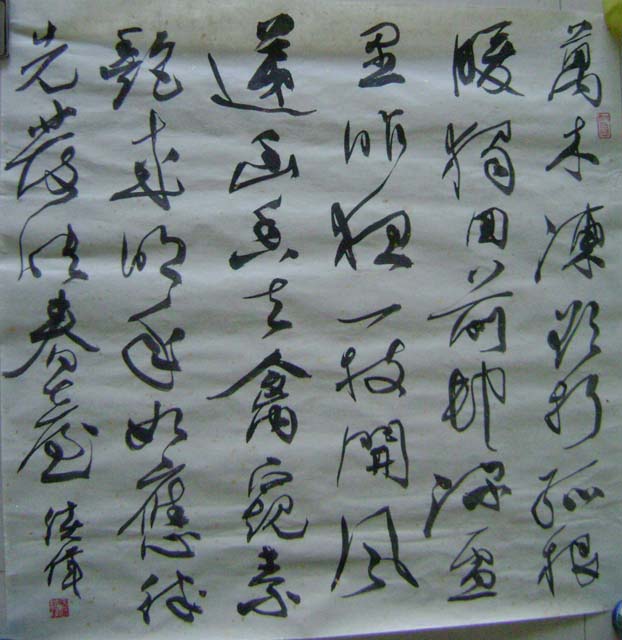 萬木凍欲折孤根
暖獨回前村深雪
里昨夜一枝開風
遞幽香去禽窺素
艷來明年如應律
先發映春臺
偉